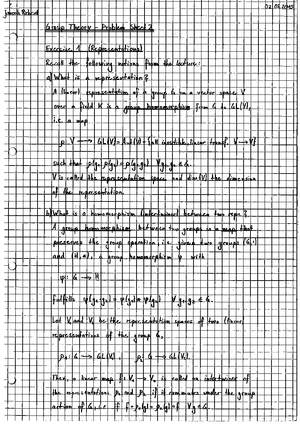 02.05.2015
Group Theory - Problem Sheet 2
Exercise 1 (Representations)
Recall the following notions from the lecture:
a) What is a representation?
A (linear) representation of a group G on a vector space V
over a field K is a group homomorphism from G to GL(V),
i.e. a map
ρ: V → GL(V) = Aut(V) = {all invertible linear transf. V → V}
such that ρ(g₁ g₂) = ρ(g₁) ρ(g₂) ∀ g₁, g₂ ∈ G.
V is called the representation space and dim(V) the dimension
of the representation.
b) What is a homomorphism (intertwiner) between two reps?
A group homomorphism between two groups is a map that
preserves the group operation, i.e. given two groups (G, ·)
and (H, *), a group homomorphism φ with
φ: G → H
fulfills φ(g₁·g₂) = φ(g₁) * φ(g₂) ∀ g₁, g₂ ∈ G.
Let V₁ and V₂ be the representation spaces of two (linear)
representations of the group G,
ρ₁: G → GL(V₁), ρ₂: G → GL(V₂).
Then, a linear map f: V₁ → V₂ is called an intertwiner of
the representations ρ₁ and ρ₂ if it commutes under the group
action of G, i.e. if f ∘ ρ₁(g) = ρ₂(g) ∘ f ∀ g ∈ G.